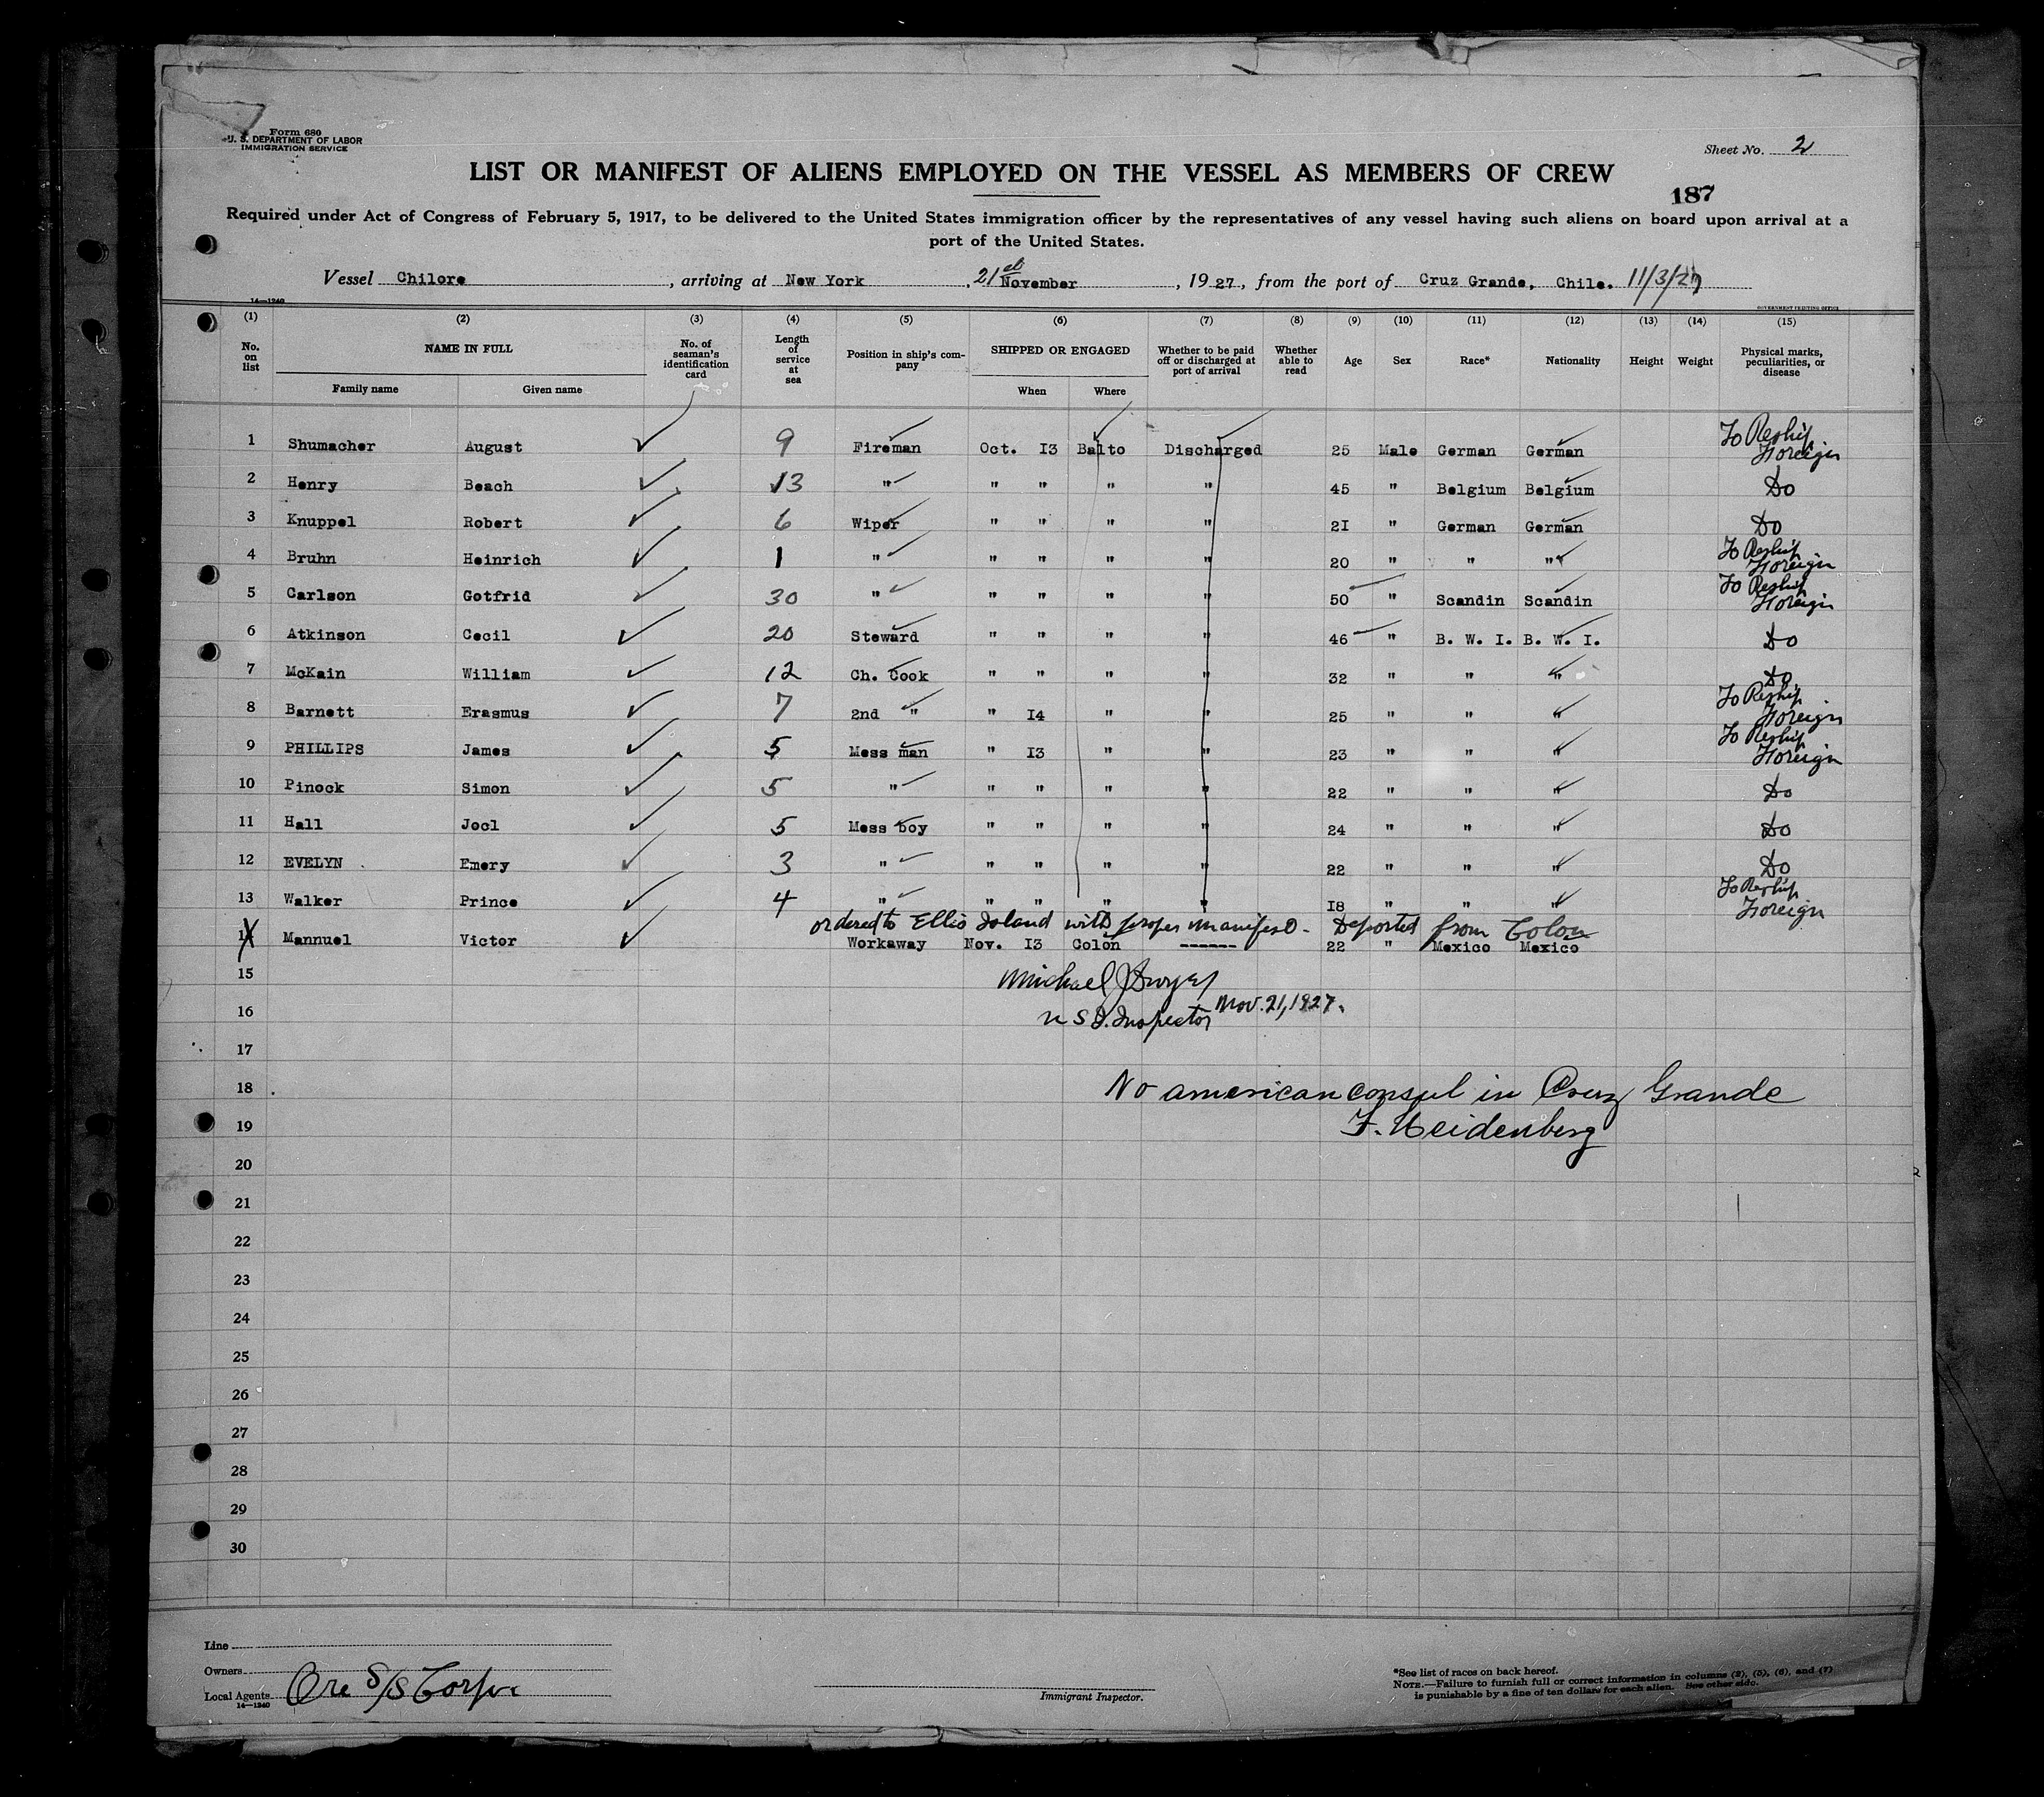 Form 680
U. S. DEPARTMENT OF LABOR
IMMIGRATION SERVICE
Sheet No. 2
LIST OR MANIFEST OF ALIENS EMPLOYED ON THE VESSEL AS MEMBERS OF CREW
187
Required under Act of Congress of February 5, 1917, to be delivered to the United States immigration officer by the representatives of any vessel having such aliens on board upon arrival at a
port of the United States.
Vessel Chilore, arriving at New York, 21st November, 1927, from the port of Cruz Grande, Chile. 11/3/27
14—1240 GOVERNMENT PRINTING OFFICE
(1) (2) (3) (4) (5) (6) (7) (8) (9) (10) (11) (12) (13) (14) (15)
No. on list NAME IN FULL Family name Given name No. of seaman's identification card Length of service at sea Position in ship's company SHIPPED OR ENGAGED When Where Whether to be paid off or discharged at port of arrival Whether able to read Age Sex Race* Nationality Height Weight Physical marks, peculiarities, or disease
1 Shumacher August 9 Fireman Oct. 13 Balto Discharged 25 Male German German To Reship Foreign
2 Henry Beach 13 " " " " " 45 " Belgium Belgium Do
3 Knuppel Robert 6 Wiper " " " " 21 " German German Do
4 Bruhn Heinrich 1 " " " " " 20 " " " To Reship Foreign
5 Carlson Gotfrid 30 " " " " " 50 " Scandin Scandin To Reship Foreign
6 Atkinson Cecil 20 Steward " " " " 46 " B. W. I. B. W. I. Do
7 McKain William 12 Ch. Cook " " " " 32 " " " Do
8 Barnett Erasmus 7 2nd " " 14 " " 25 " " " To Reship Foreign
9 PHILLIPS James 5 Mess man " 13 " " 23 " " " To Reship Foreign
10 Pinock Simon 5 " " " " " 22 " " " Do
11 Hall Joel 5 Mess boy " " " " 24 " " " Do
12 EVELYN Emery 3 " " " " " 22 " " " Do
13 Walker Prince 4 " " " " " 18 " " " To Reship Foreign
ordered to Ellis Island with proper manifest - Deported from Colon
Mannuel Victor Workaway Nov. 13 Colon ------ 22 " Mexico Mexico
15 Michael J Dwyer
16 U S I. Inspector Nov. 21, 1927.
17
18 No american consul in Cruz Grande
19 F. Heidenberg
20
21
22
23
24
25
26
27
28
29
30
Line
Owners
Local Agents Ore S/S Corpn
14—1240
Immigrant Inspector.
*See list of races on back hereof.
NOTE.—Failure to furnish full or correct information in columns (2), (5), (6), and (7)
is punishable by a fine of ten dollars for each alien. See other side.